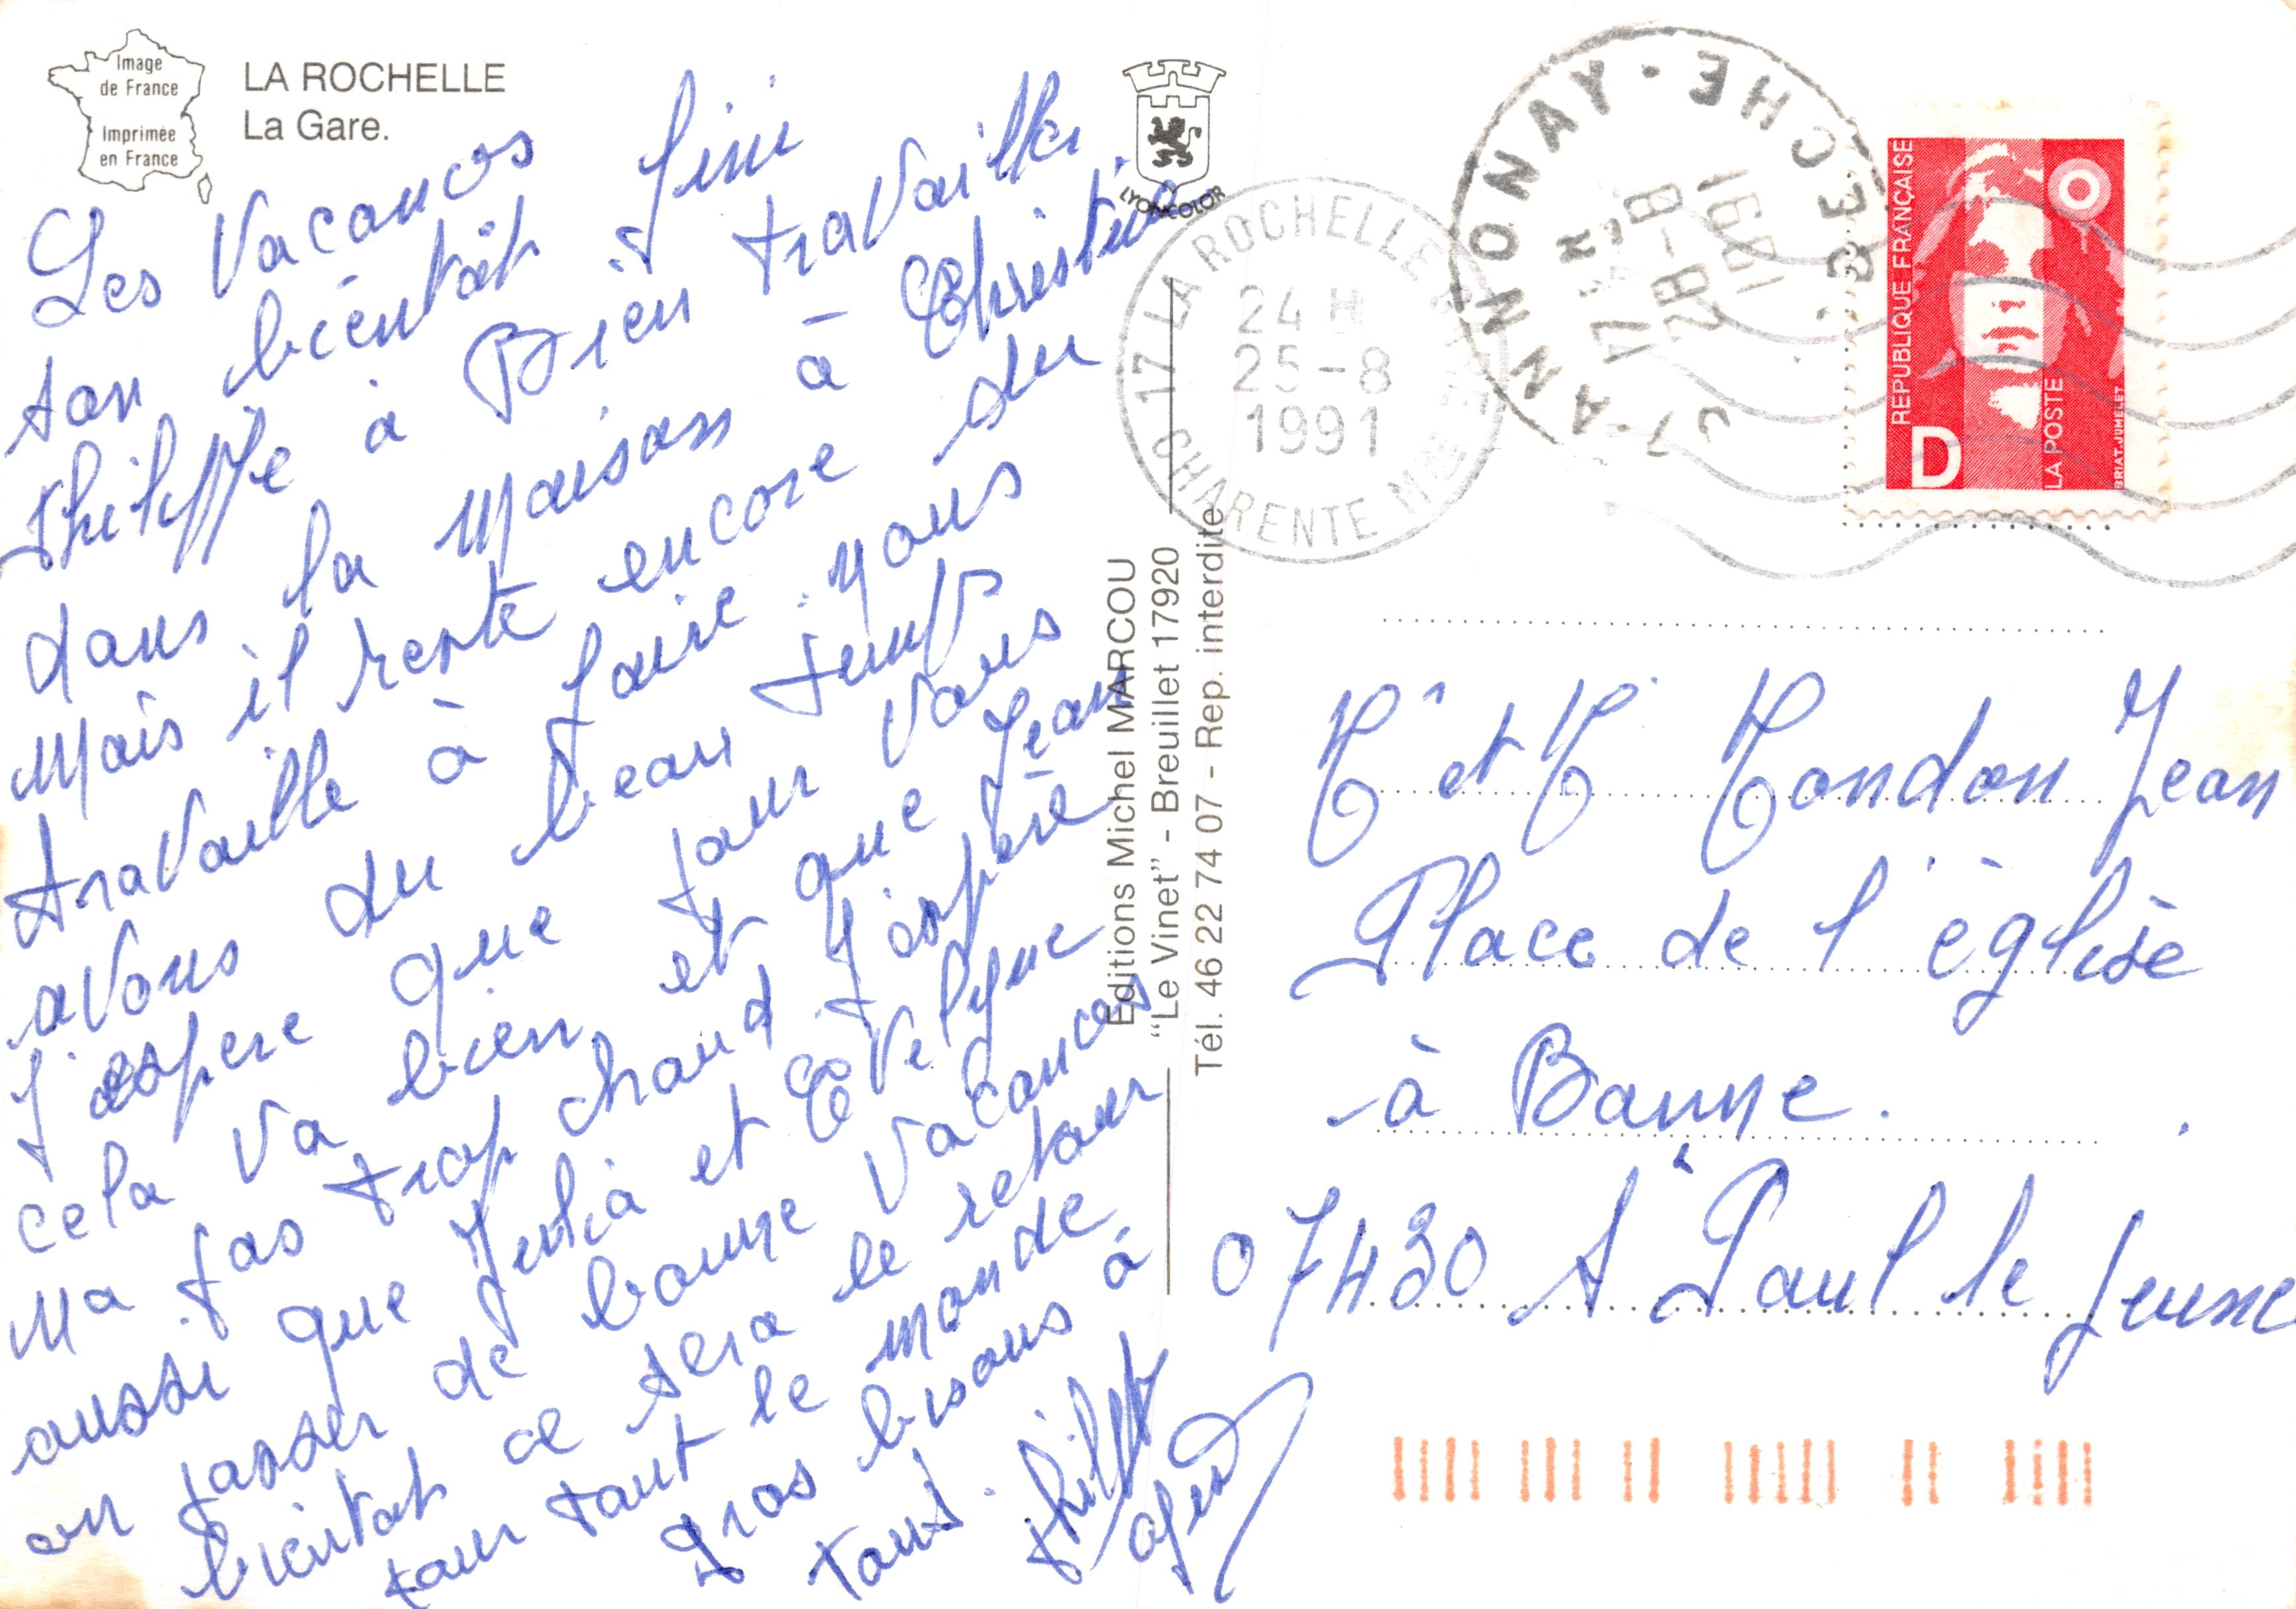 Image
de France
Imprimée
en France
LA ROCHELLE
La Gare.
LYONCOLOR
Les Vacances
son bientôt fini
Philippe à Bien travailler
dans la maison à Christine.
Mais il reste encore du
travaille à faire. nous
avons du beau temps
J'espere que pour vous
cela va bien et que Jean
n'a pas trop chaud J'espère
aussi que Julia et Evelyne
on passer de bonne vacances
bientot ce sera le retour
pour tout le monde
gros bisous à
tous.
Philippe
Editions Michel MARCOU
"Le Vinet" - Breuillet 17920
Tél. 46 22 74 07 - Rep. interdite
17 LA ROCHELLE
24 H
25-8
1991
CHARENTE Mme
07-ANNONAY
ARDECHE
17 H
28-8
1991
REPUBLIQUE FRANÇAISE
D
LA POSTE
BRIAT.JUMELET
Mr et M Mondon Jean
Place de l'église
à Banne.
07430 St Paul le Jeune